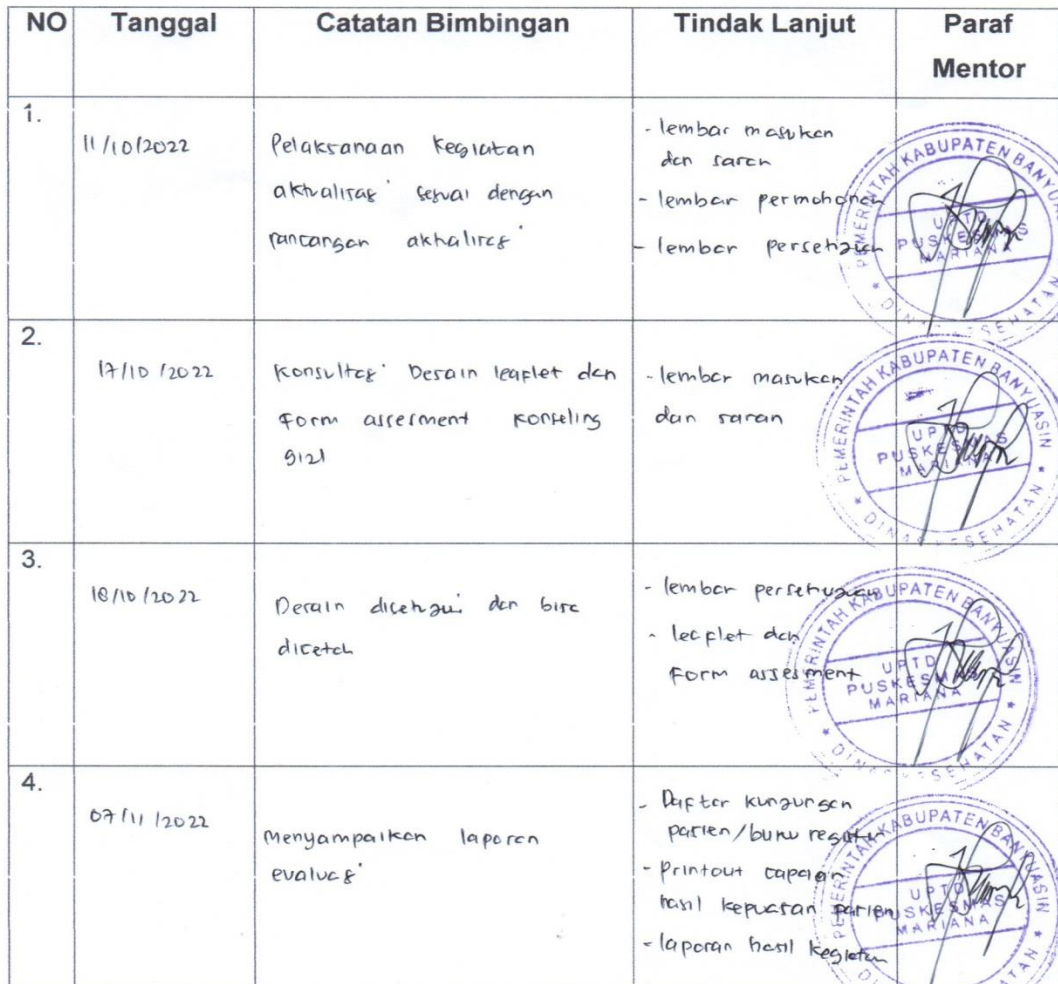 NO Tanggal Catatan Bimbingan Tindak Lanjut Paraf
Mentor
1.
11/10/2022
Pelaksanaan kegiatan
aktualisasi sesuai dengan
rancangan aktualisasi
- lembar masukan
dan saran
- lembar permohonan
- lembar persetujuan
PEMERINTAH KABUPATEN BANYUASIN
UPTD
PUSKESMAS
MARIANA
* DINAS KESEHATAN *
2.
17/10/2022
Konsultasi Desain leaflet dan
Form assesment konseling
gizi
- lembar masukan
dan saran
PEMERINTAH KABUPATEN BANYUASIN
UPTD
PUSKESMAS
MARIANA
* DINAS KESEHATAN *
3.
18/10/2022
Desain disetujui dan bisa
dicetak
- lembar persetujuan
- leaflet dan
Form assesment
PEMERINTAH KABUPATEN BANYUASIN
UPTD
PUSKESMAS
MARIANA
* DINAS KESEHATAN *
4.
07/11/2022
Menyampaikan laporan
evaluasi
- Daftar kunjungan
pasien/buku register
- Printout capaian
hasil kepuasan pasien
- laporan hasil kegiatan
PEMERINTAH KABUPATEN BANYUASIN
UPTD
PUSKESMAS
MARIANA